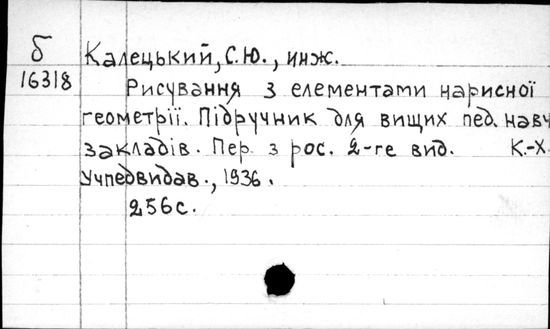 б
16318
Калецький, С.Ю., инж.
Рисування з елементами нарисної
геометрії. Підручник для вищих пед. навч
закладів. Пер. з рос. 2-ге вид. К.-Х
Учпедвидав., 1936.
256с.